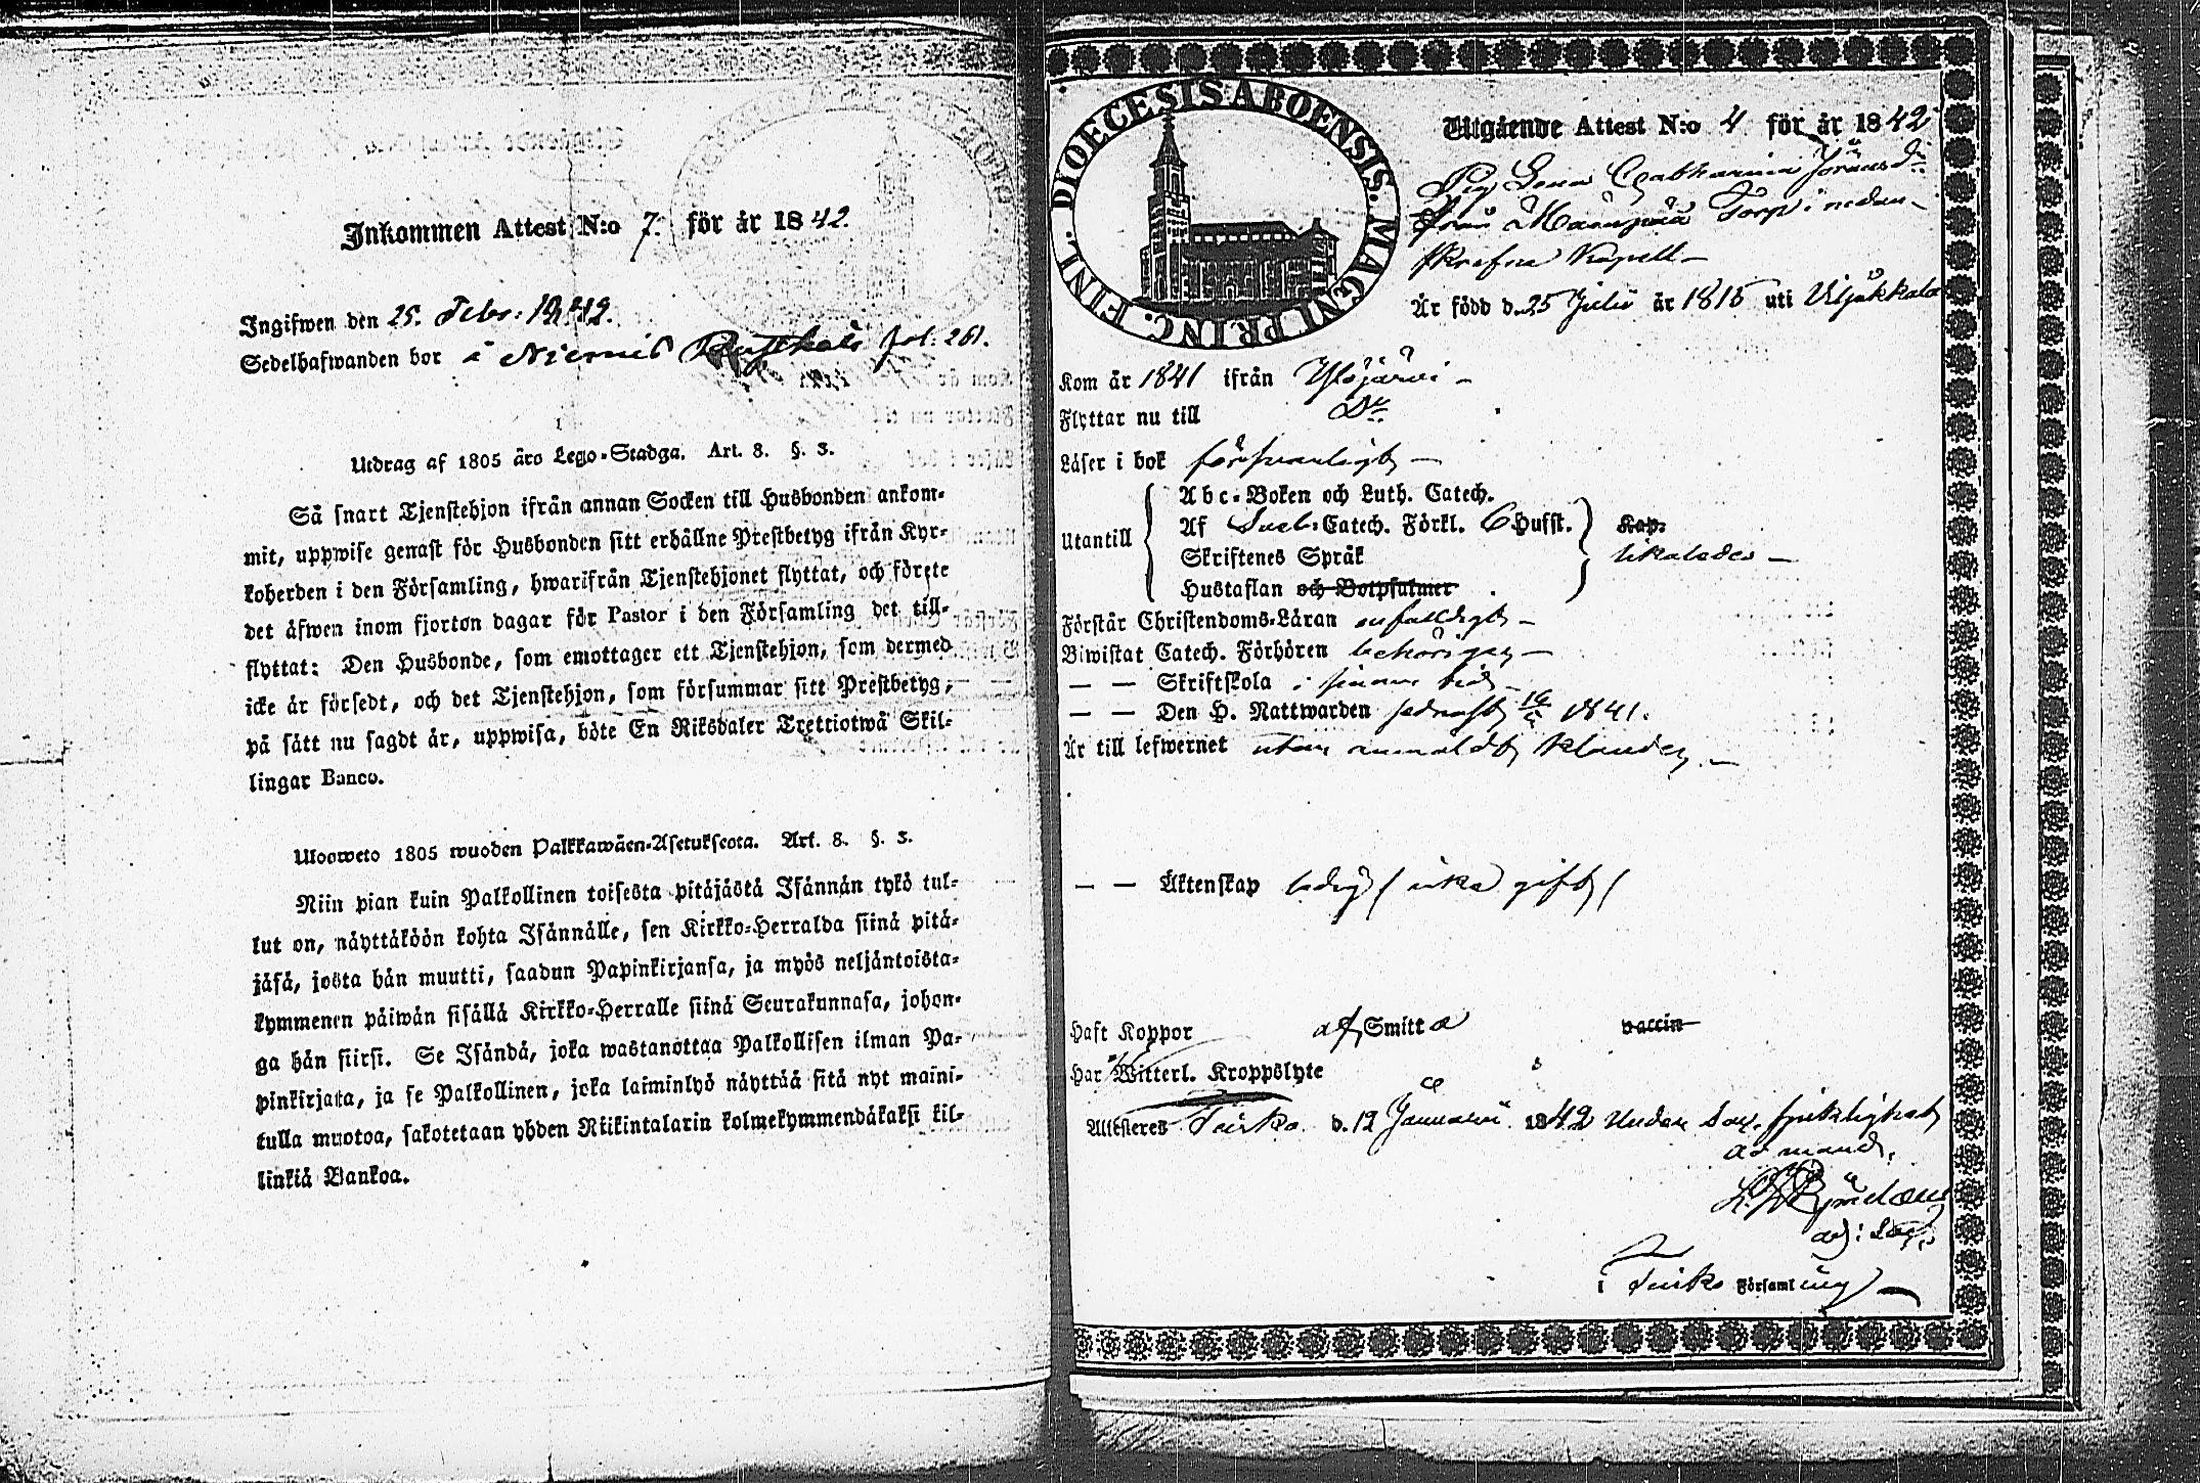 Inkommen Attest N:o 7. för år 1842.
Ingifwen den 25. Febr: 1842.
Sedelhafwanden bor i Niemis fol: 261.
Utdrag af 1805 års Lego-Stadga. Art. 8. §. 3.
Så snart Tjenstehjon ifrån annan Socken till Husbonden ankom-
mit, uppwise genast för Husbonden sitt erhållne Prestbetyg ifrån Kyr-
koherden i den Församling, hwarifrån Tjenstehjonet flyttat, och förete
det äfwen inom fjorton dagar för Pastor i den Församling det till-
flyttat: Den Husbonde, som emottager ett Tjenstehjon, som dermed
icke är försedt, och det Tjenstehjon, som försummar sitt Prestbetyg,
på sätt nu sagdt är, uppwisa, böte En Riksdaler Trettiotwå Skil-
lingar Banco.
Uloosweto 1805 wuoden Palkkawäen-Asetuksesta. Art. 8. §. 3.
Niin pian kuin Palkollinen toisesta pitäjästä Isännän tykö tul-
lut on, näyttäköön kohta Isännälle, sen Kirkko-Herralda siinä pitä-
jäsä, josta hän muutti, saadun Papinkirjansa, ja myös neljäntoista-
kymmenen päiwän sisällä Kirkko-Herralle siinä Seurakunnasa, johon-
ga hän siirsi. Se Isändä, joka wastanottaa Palkollisen ilman Pa-
pinkirjatta, ja se Palkollinen, joka laiminlyö näyttää sitä nyt maini-
tulla muotoa, sakotetaan yhden Riikintalarin kolmekymmendäkaksi kil-
linkiä Bankoa.
DIOECESIS ABOENSIS. MAGNI PRINC. FINL.
Utgående Attest N:o 4 för år 1842
Pig Lena Cathharina Jöransdr
från Torp i nedan-
skrefne Kapell -
Är född d. 25 Julii år 1815 uti Viljakkala
Kom år 1841 ifrån Ylöjärvi -
Flyttar nu till Do
Läser i bok försvarligt -
Abc-Boken och Luth. Catech.
Utantill Af Sveb. Catech. Förkl. 6 Hufst. Kap.
Skriftenes Språk likaledes -
Hustaflan och Botpsalmer
Förstår Christendoms-Läran enfaldigt -
Biwistat Catech. Förhören behörigen -
— — Skriftskola i sinom tid -
— — Den H. Nattwarden sednast 1841.
Är till lefwernet utan anmäldt klander. -
— — Äktenskap ledig (icke gift)
Haft Koppor af Smitta vaccin
Har Witterl. Kroppslyte
Attesteres Teisko d. 12 Januarii 1842 Under
ad mand.
adj: Sac
i Teisko Församling -